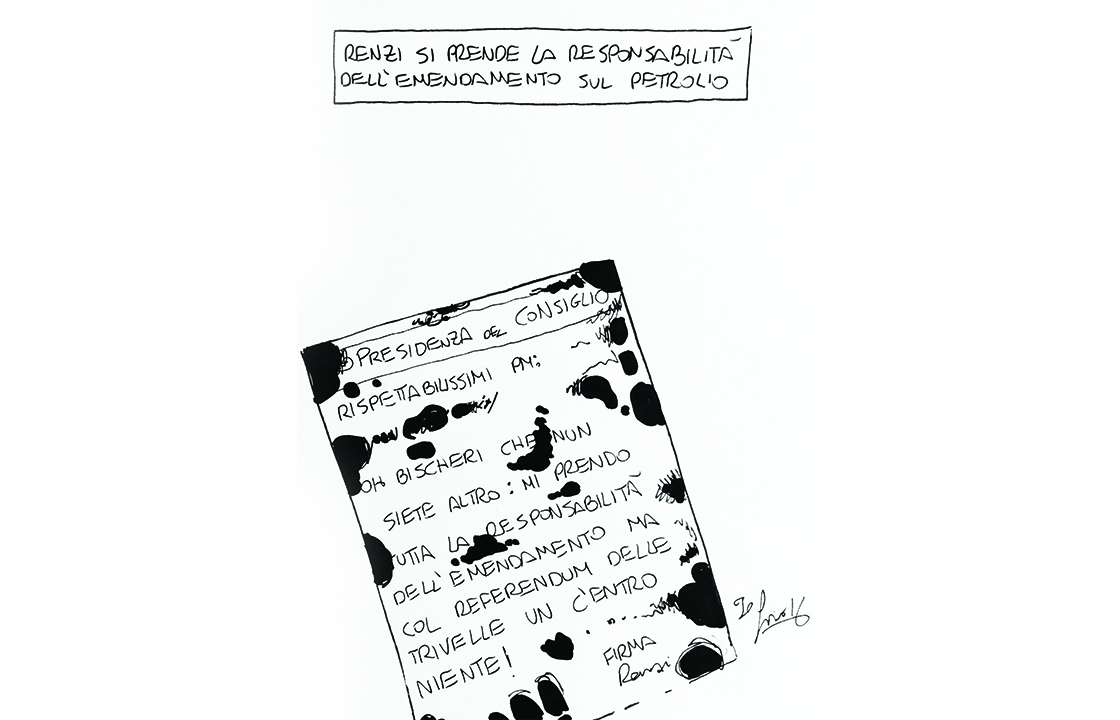 RENZI SI PRENDE LA RESPONSABILITÀ
DELL'EMENDAMENTO SUL PETROLIO
PRESIDENZA DEL CONSIGLIO
RISPETTABILISSIMI PM:
OH BISCHERI CHE NUN
SIETE ALTRO: MI PRENDO
TUTTA LA RESPONSABILITÀ
DELL'EMENDAMENTO MA
COL REFERENDUM DELLE
TRIVELLE UN C'ENTRO
NIENTE!
FIRMA
Renzi